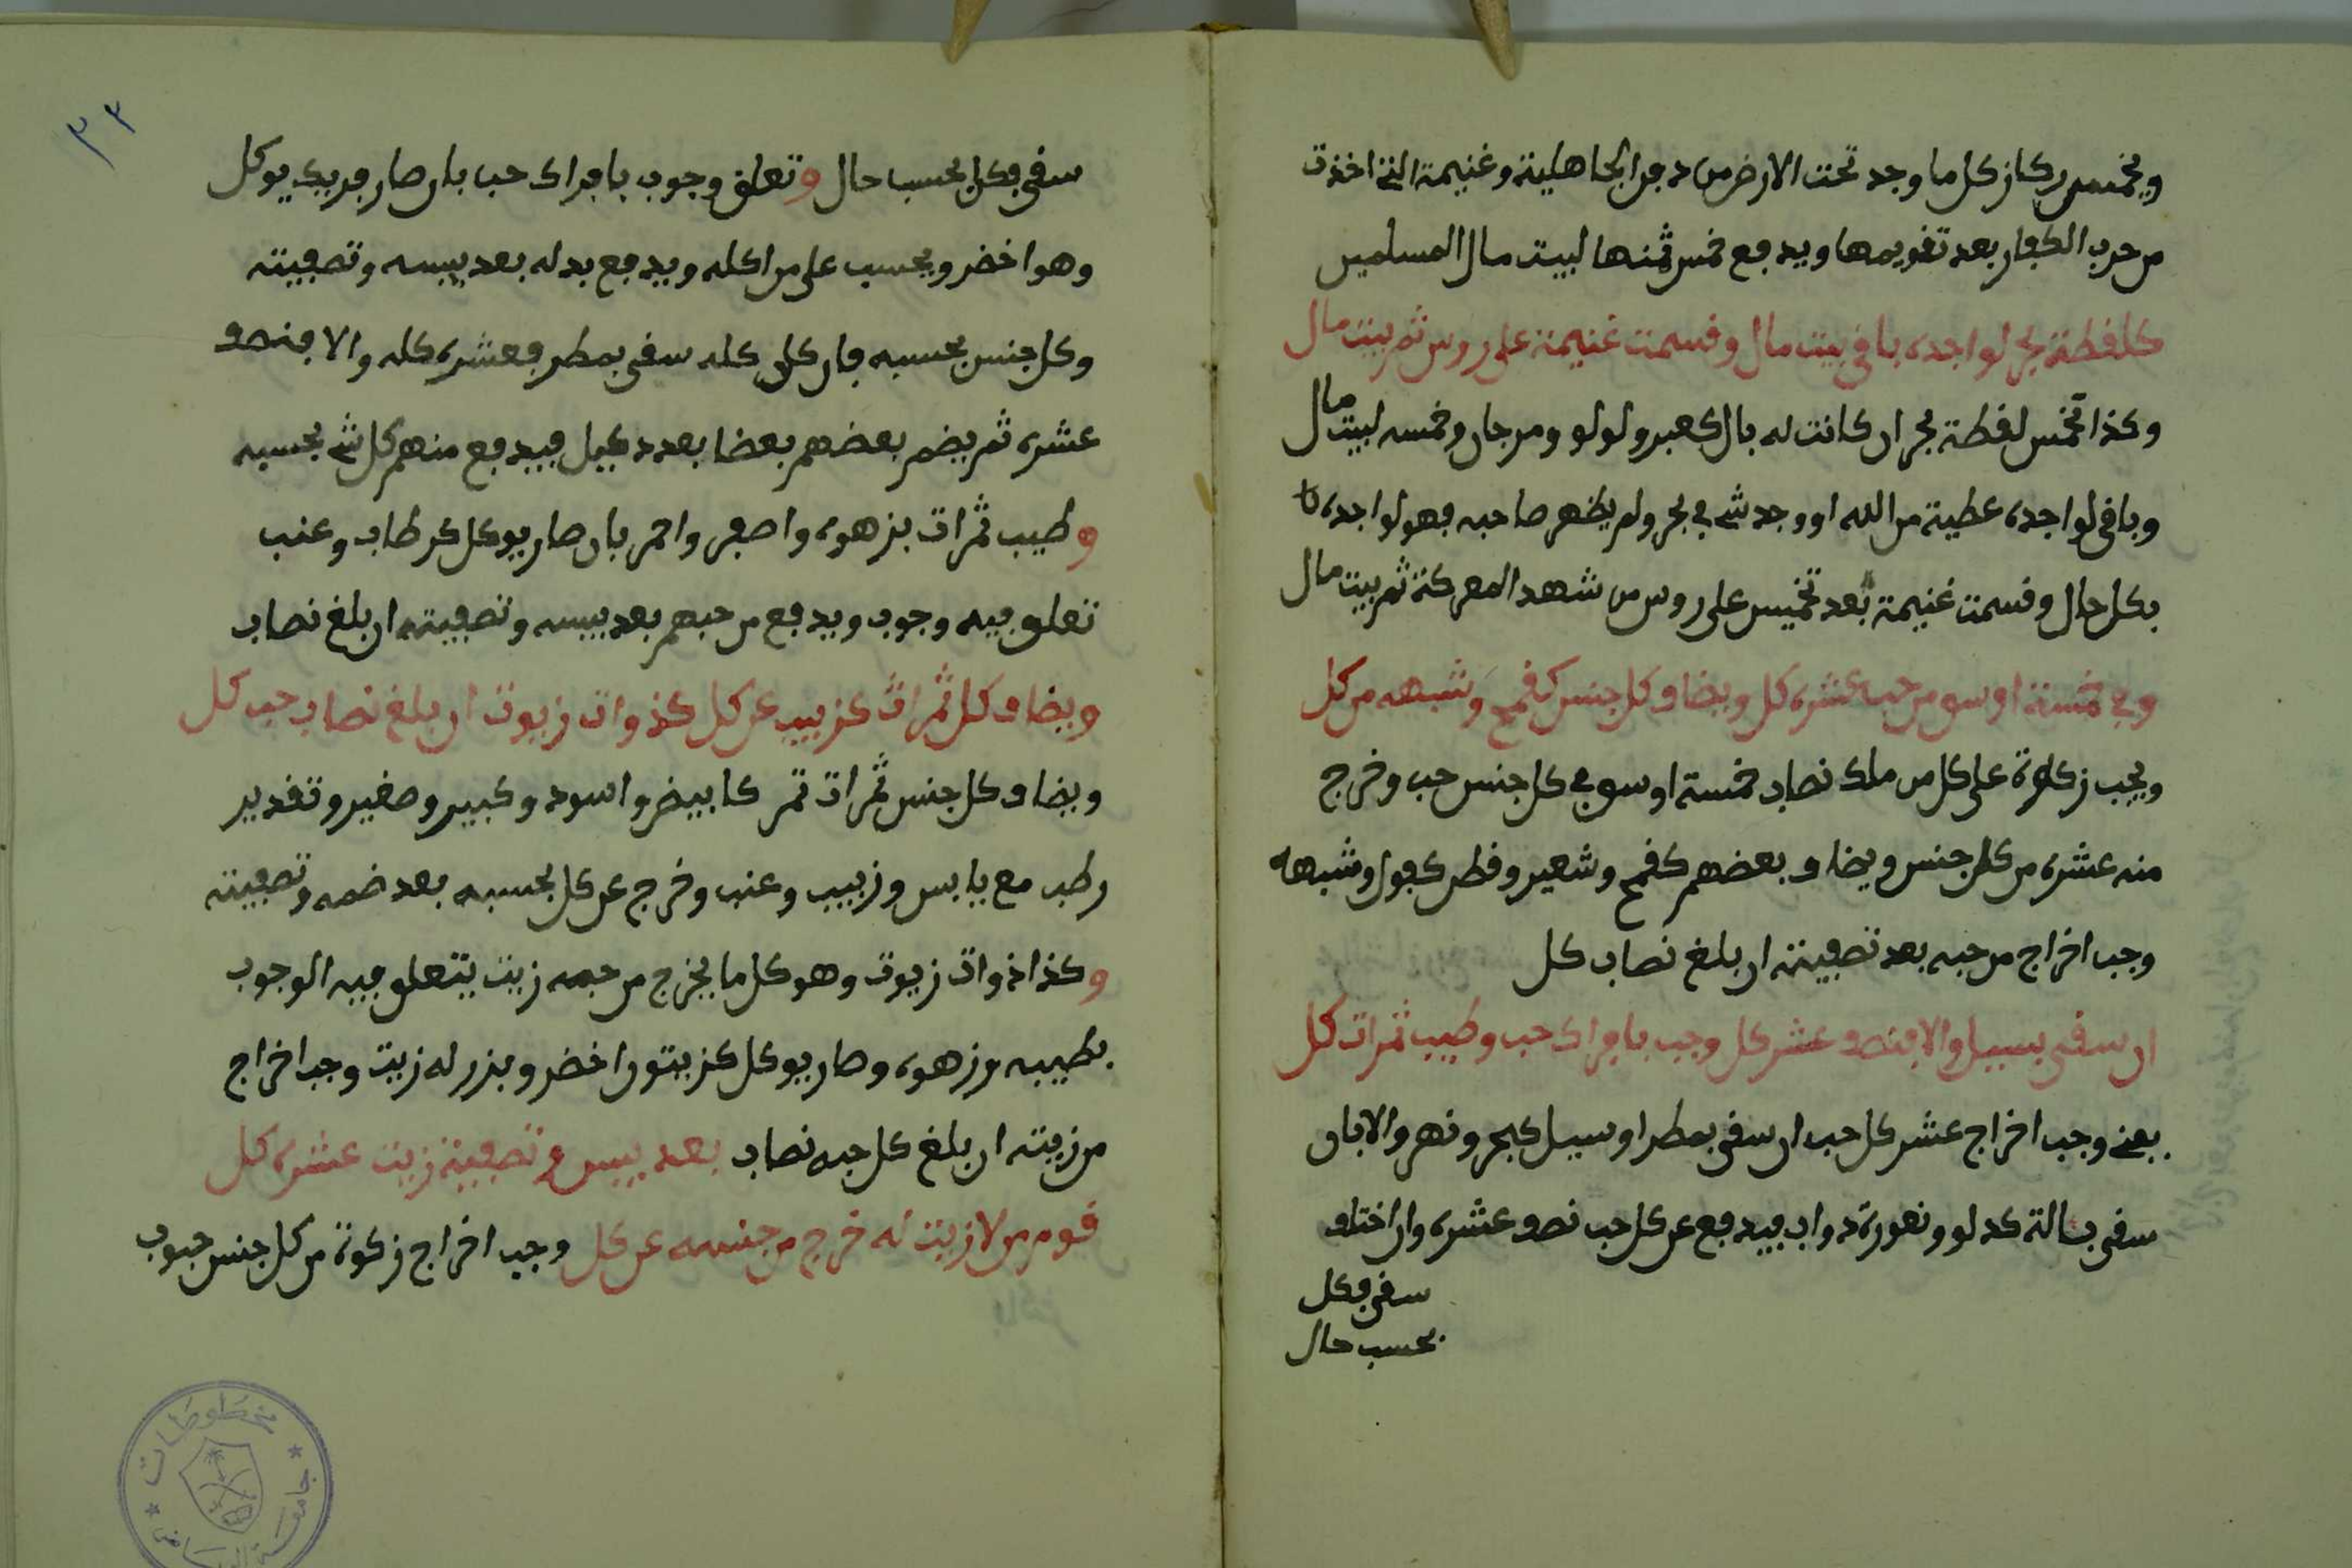 ويخمس ركاز كل ما وجد تحت الارض من دفن الجاهلية وغنيمة التي اخذت
من حرب الكفار بعد تقويمها ويدفع خمس ثمنها لبيت مال المسلمين
كلقطة بحر لواجده باقي بيت مال وقسمت غنيمة على روس ثم بيت مال
وكذا تخمس لقطة بحر ان كانت له بال كعبر ولولو ومرجان وخمسه لبيت مال
وباقي لواجده عطية من الله او وجد شي في بحر ولم يظهر صاحبه فهو لواجده
بكل حال وقسمت غنيمة بعد تخميس على روس من شهد المعركة ثم بيت مال
وفي خمسة اوسق من حب عشره كل ويضاف كل جنس كقمح وشبهه من كل
ويجب زكاوة على كل من ملك نصاب خمسة اوسق في كل جنس حب وخرج
منه عشره من كل جنس ويضاف بعضهم كقمح وشعير وقطن كفول وشبهه
وجب اخراج من حبه بعد تصفيته ان بلغ نصاب كل
ان سقي بسيل والا فنصف عشر كل وجب بافراك حب وطيب ثمرات كل
يعني وجب اخراج عشر كل حب ان سقي بمطر او سيل كبحر ونهر والا بان
سقي بسالة كدلو ونعورة دواب فيدفع عن كل حب نصف عشره وان اختلف
سقي فكل
بحسب حال
٣٣
سقي فكل بحسب حال وتعلق وجوب بافراك حب بان صار فريك يوكل
وهو اخضر ويحسب على من اكله ويدفع بدله بعد يبسه وتصفيته
وكل جنس بحسبه فان كان كله سقي بمطر فعشره كله والا فنصف
عشره ثم يضم بعضهم بعضا بعدد كيل فيدفع منهم كل شي بحسبه
وطيب ثمرات بزهوه واصفر واحمر بان صار يوكل كرطاب وعنب
تعلق فيه وجوب ويدفع من حبهم بعد يبسه وتصفيته ان بلغ نصاب
ويضاف كل ثمرات كزبيب عن كل كذوات زيوت ان بلغ نصاب حب كل
ويضاف كل جنس ثمرات تمر كابيض واسود وكبير وصغير وتقدير
رطب مع يابس وزبيب وعنب وخرج عن كل بحسبه بعد ضمه وتصفيته
وكذا ذوات زيوت وهو كل ما يخرج من حبه زيت يتعلق فيه الوجوب
بطيبه وزهوه وصار يوكل كزيتون اخضر وبزر له زيت وجب اخراج
من زيته ان بلغ كل حبه نصاب بعد يبس وتصفية زيت عشره كل
قوم من لا زيت له خرج من جنسه عن كل وجب اخراج زكوة من كل جنس حبوب
مخطوطات
جامعة الرياض